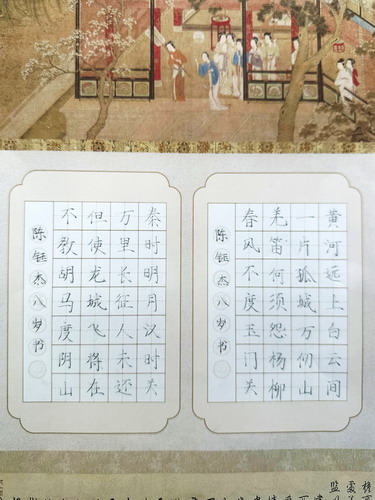 黄河远上白云间
一片孤城万仞山
羌笛何须怨杨柳
春风不度玉门关
陈钰杰八岁书
秦时明月汉时关
万里长征人未还
但使龙城飞将在
不教胡马度阴山
陈钰杰八岁书